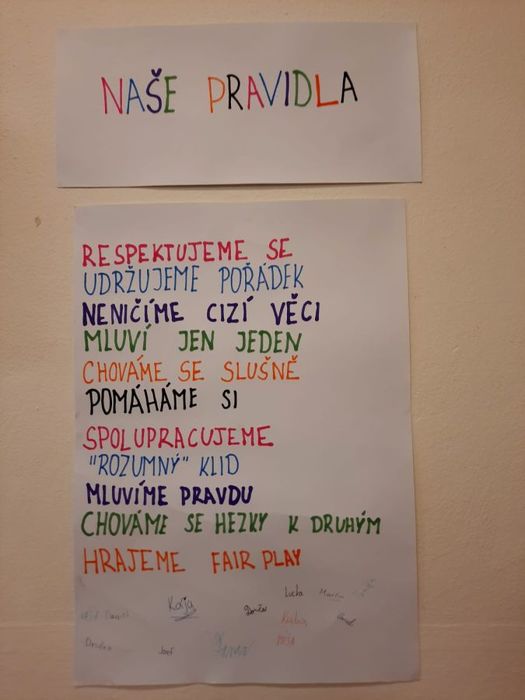 NAŠE PRAVIDLA
RESPEKTUJEME SE
UDRŽUJEME POŘÁDEK
NENIČÍME CIZÍ VĚCI
MLUVÍ JEN JEDEN
CHOVÁME SE SLUŠNĚ
POMÁHÁME SI
SPOLUPRACUJEME
"ROZUMNÝ" KLID
MLUVÍME PRAVDU
CHOVÁME SE HEZKY K DRUHÝM
HRAJEME FAIR PLAY
Kája Lucka
Kuba
Josef